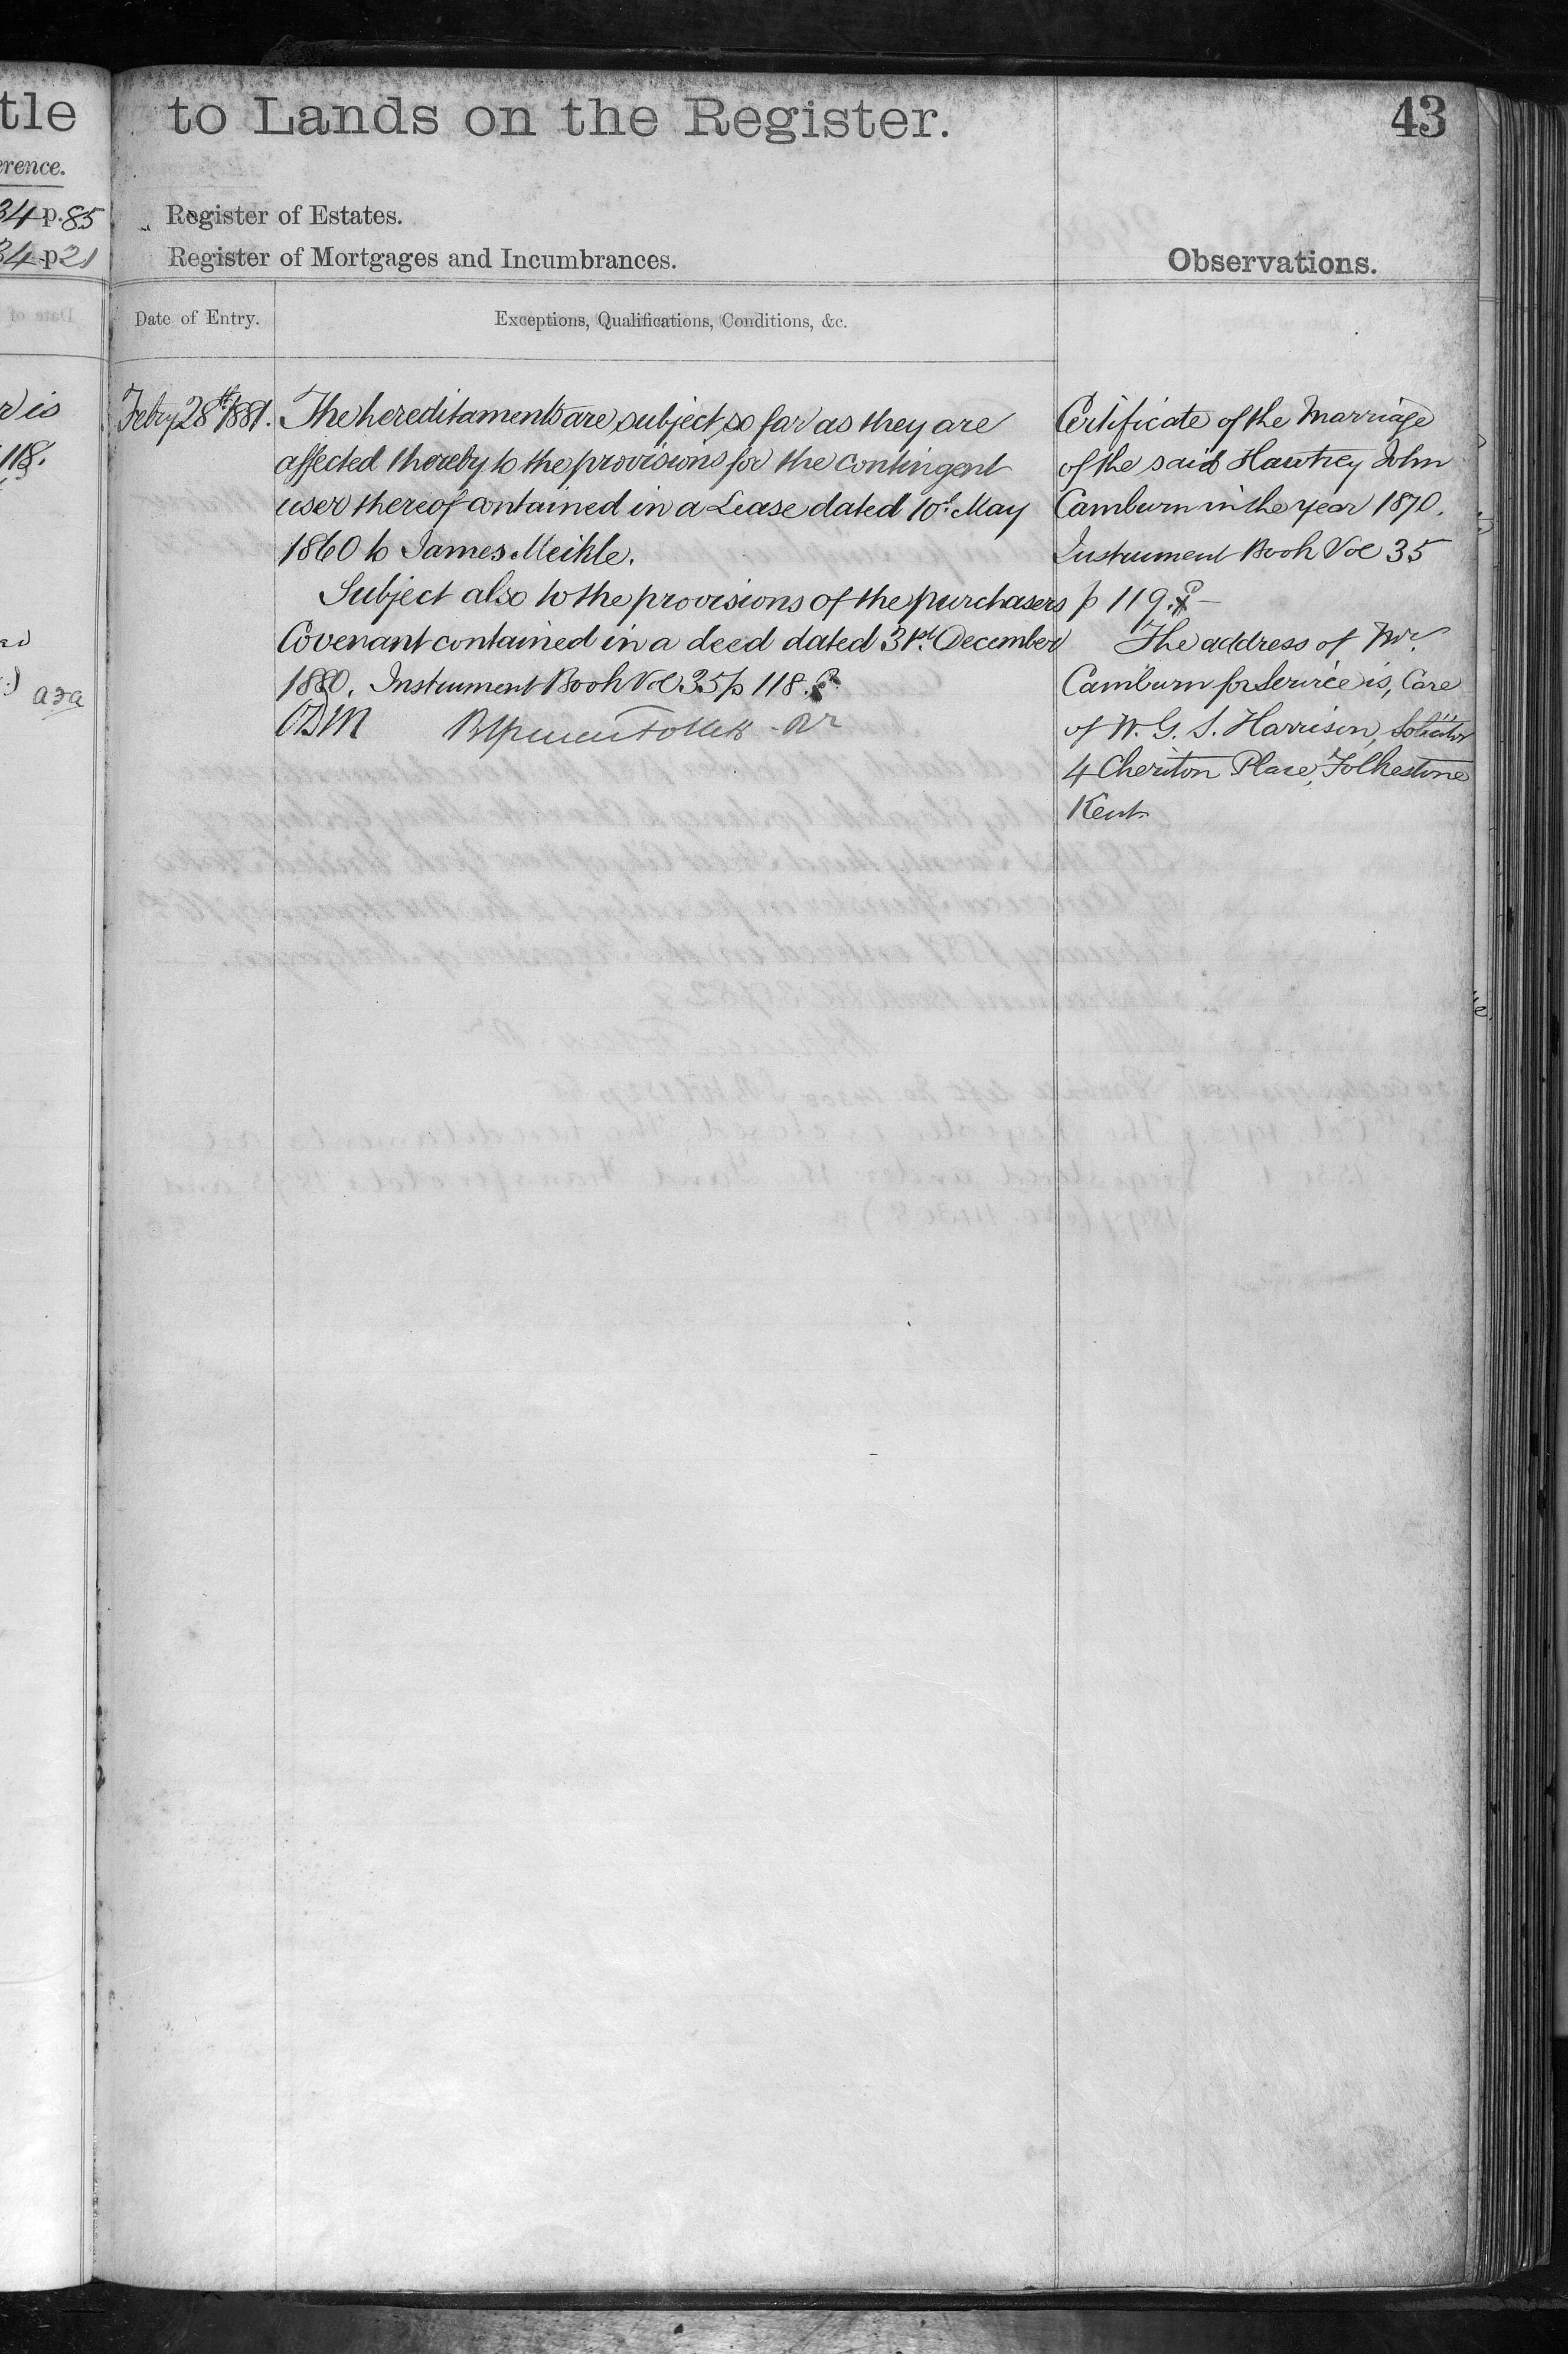 tle
erence.
34 p. 85
34 p 21
r is
118.
ara
to Lands on the Register.
43
Register of Estates.
Register of Mortgages and Incumbrances.
Observations.
Date of Entry.
Exceptions, Qualifications, Conditions, &c.
Febry 28th 1881.
The hereditaments are subject so far as they are
affected thereby to the provisions for the contingent
user thereof contained in a Lease dated 10th May
1860 to James Meikle.
Subject also to the provisions of the purchasers
Covenant contained in a deed dated 31st December
1880. Instrument Book Vol 35 p 118.
Follett
Certificate of the Marriage
of the said Hawtrey John
Camburn in the year 1870.
Instrument Book Vol 35
p 119.
The address of Mr
Camburn for Service is, Care
of W. G. S. Harrison, Solicitor
4 Cheriton Place, Folkestone
Kent